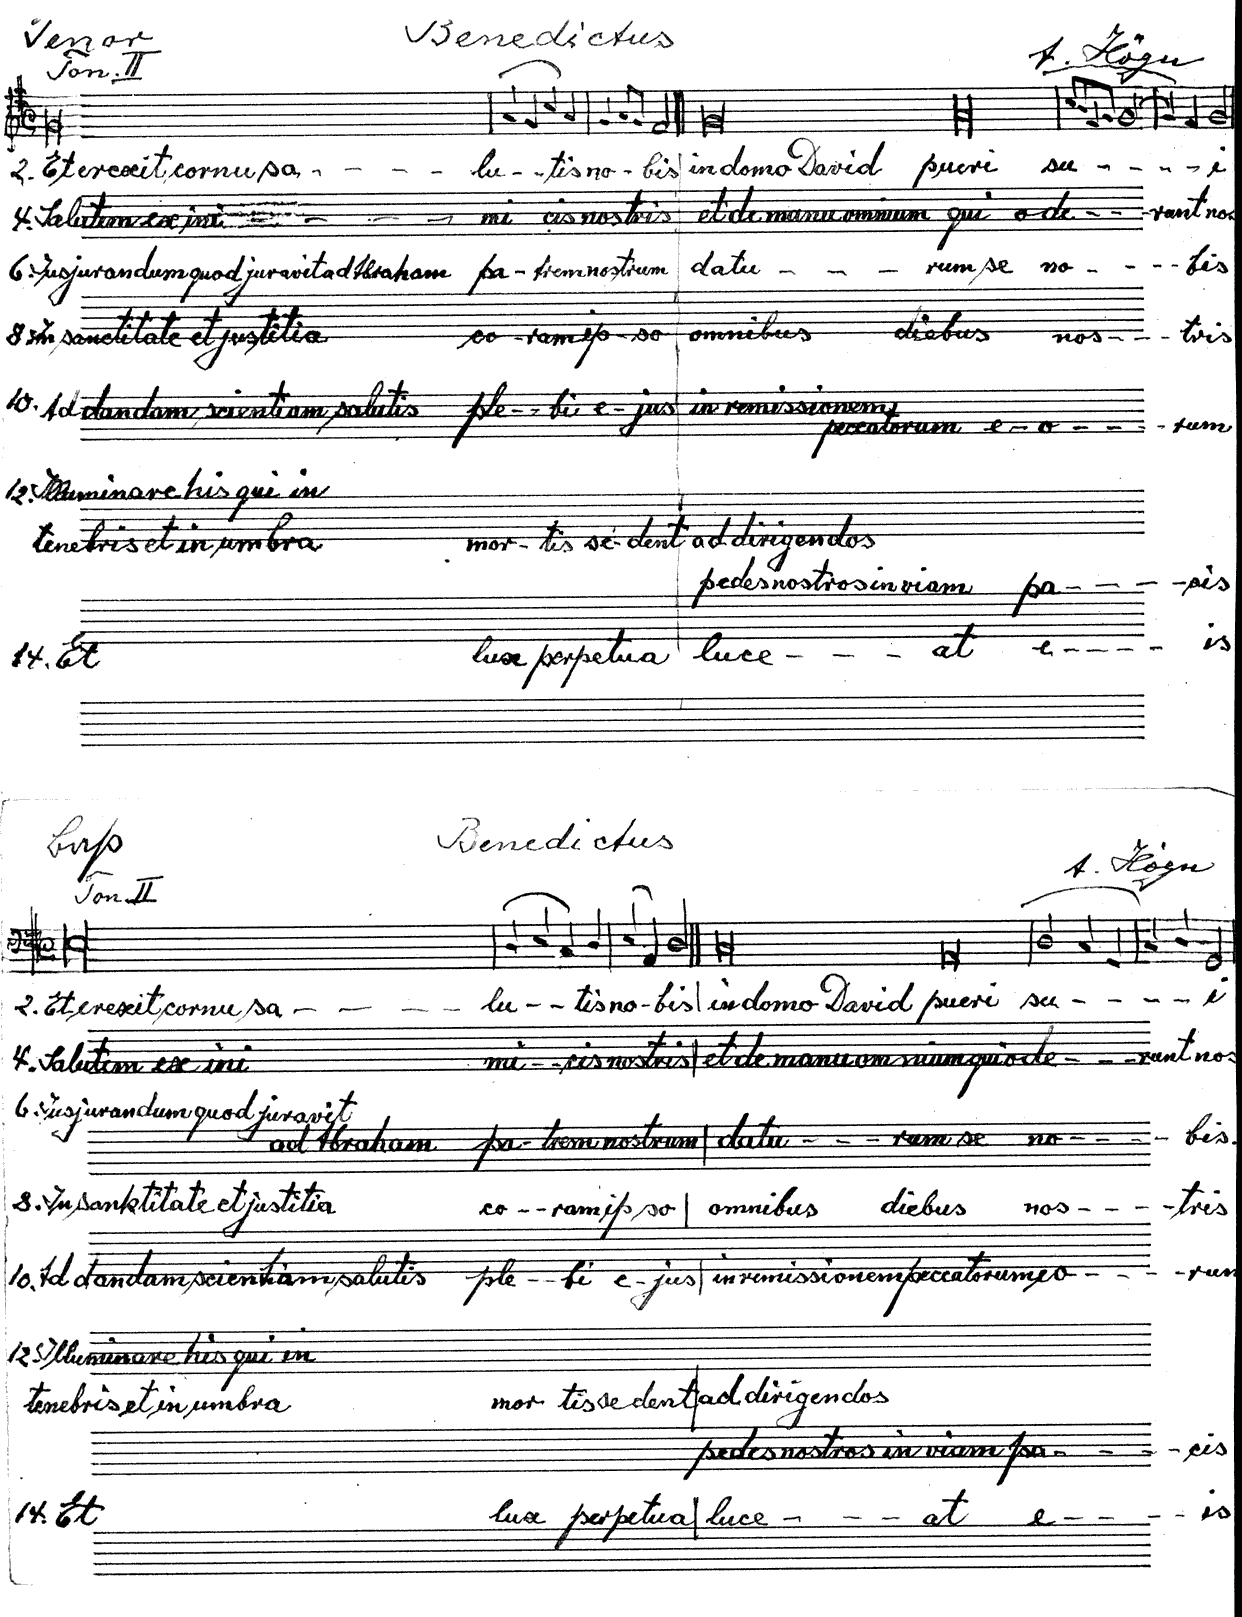 Tenor Benedictus A. Högn
Ton. II
2. Et erexit cornu sa - - - - lu - - tis no - bis | in domo David pueri su - - - - i
4. Salutem ex ini - - - - mi cis nostris et de manu omnium qui o de - - - runt nos
6. Jusjurandum quod juravit ad Abraham pa - trem nostrum datu - - - rum se no - - - - bis
8. In sanctitate et justitia co - ram ip - so omnibus diebus nos - - - tris
10. Ad dandam scientiam salutis ple - - bi e - jus in remissionem
peccatorum e - o - - - - rum
12. Illuminare his qui in
tenebris et in umbra mor - tis se - dent ad dirigendos
pedes nostros in viam pa - - - - cis
14. Et lux perpetua luce - - - at e - - - - is
Baß Benedictus A. Högn
Ton. II
2. Et erexit cornu sa - - - - lu - - tis no - bis | in domo David pueri su - - - - i
4. Salutem ex ini mi - - cis nostris | et de manu om nium qui o de - - - runt nos
6. Jusjurandum quod juravit
ad Abraham pa - trem nostrum | datu - - - rum se no - - - - bis.
8. In sanktitate et justitia co - - ram ip so | omnibus diebus nos - - - - tris
10. Ad dandam scientiam salutis ple - - bi e - jus | in remissionem peccatorum eo - - - - rum
12. Illuminare his qui in
tenebris et in umbra mor tis se dent | ad dirigendos
pedes nostros in viam pa - - - - cis
14. Et lux perpetua | luce - - - at e - - - - is